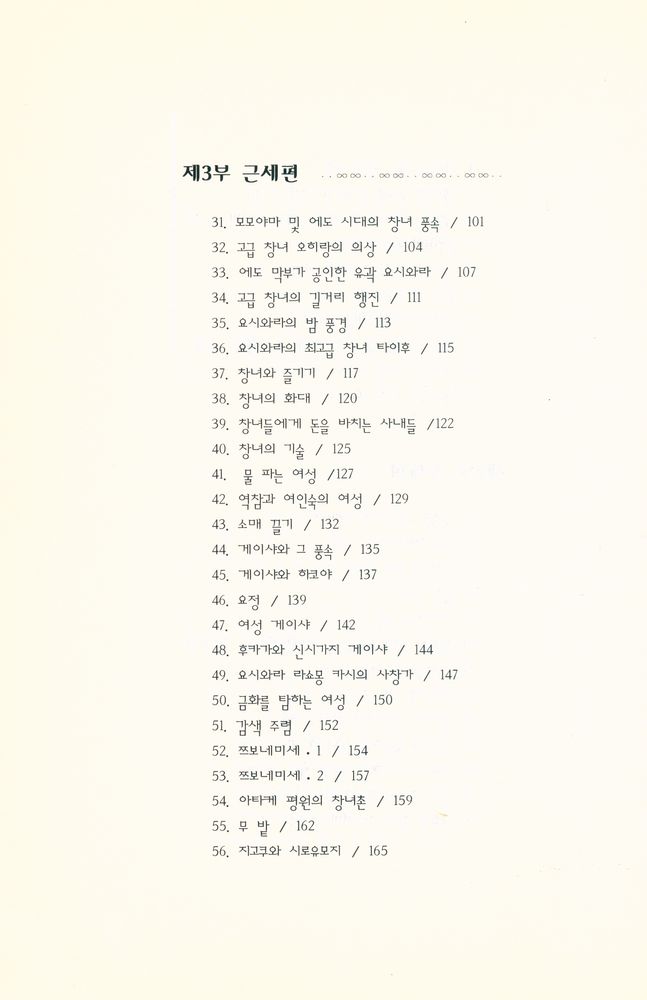 제3부 근세편 ‥∞∞‥∞∞‥∞∞‥∞∞‥
31. 모모야마 및 에도 시대의 창녀 풍속 / 101
32. 고급 창녀 오히랑의 의상 / 104
33. 에도 막부가 공인한 유곽 요시와라 / 107
34. 고급 창녀의 길거리 행진 / 111
35. 요시와라의 밤 풍경 / 113
36. 요시와라의 최고급 창녀 타이후 / 115
37. 창녀와 즐기기 / 117
38. 창녀의 화대 / 120
39. 창녀들에게 돈을 바치는 사내들 /122
40. 창녀의 기술 / 125
41. 물 파는 여성 /127
42. 역참과 여인숙의 여성 / 129
43. 소매 끌기 / 132
44. 게이샤와 그 풍속 / 135
45. 게이샤와 하코야 / 137
46. 요정 / 139
47. 여성 게이샤 / 142
48. 후카가와 신시가지 게이샤 / 144
49. 요시와라 라쇼몽 카시의 사창가 / 147
50. 금화를 탐하는 여성 / 150
51. 감색 주렴 / 152
52. 쯔보네미세 · 1 / 154
53. 쯔보네미세 · 2 / 157
54. 아타케 평원의 창녀촌 / 159
55. 무 밭 / 162
56. 지고쿠와 시로유모지 / 165